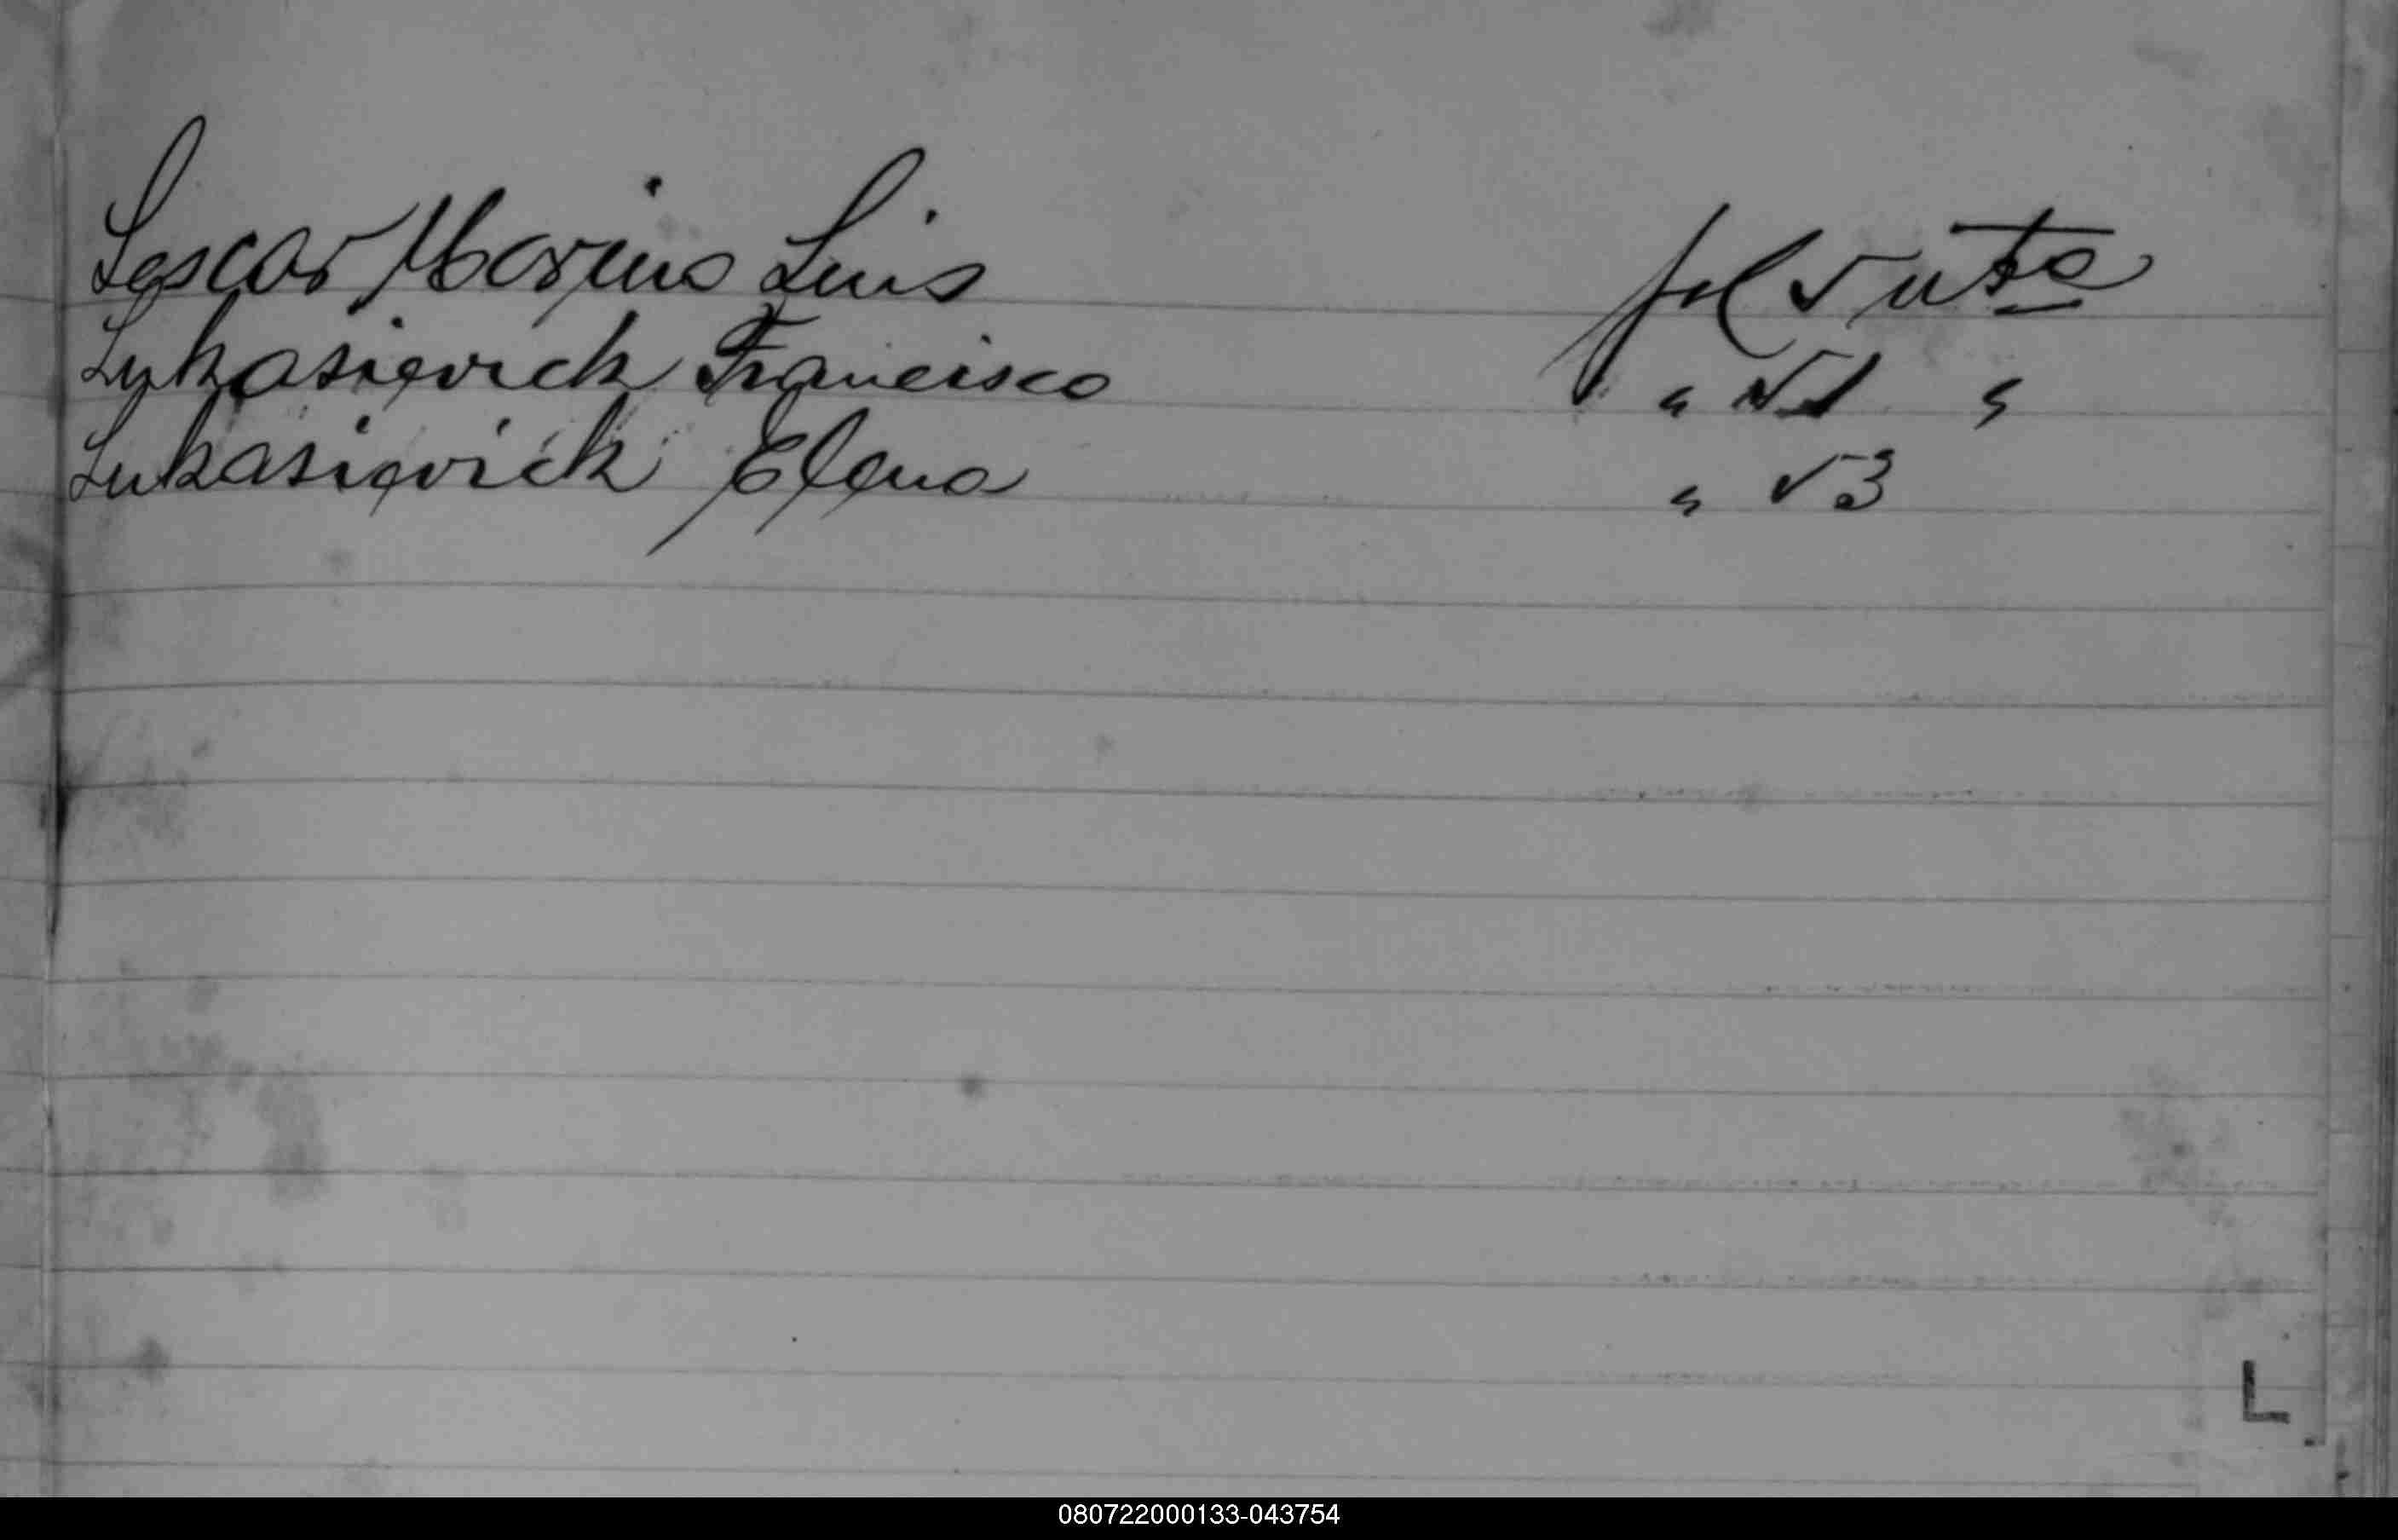 Lescar Marino Luis fol 5 uta
Lukasievick Francisco " 51 "
Lukasievick Elena " 53
L
080722000133-043754